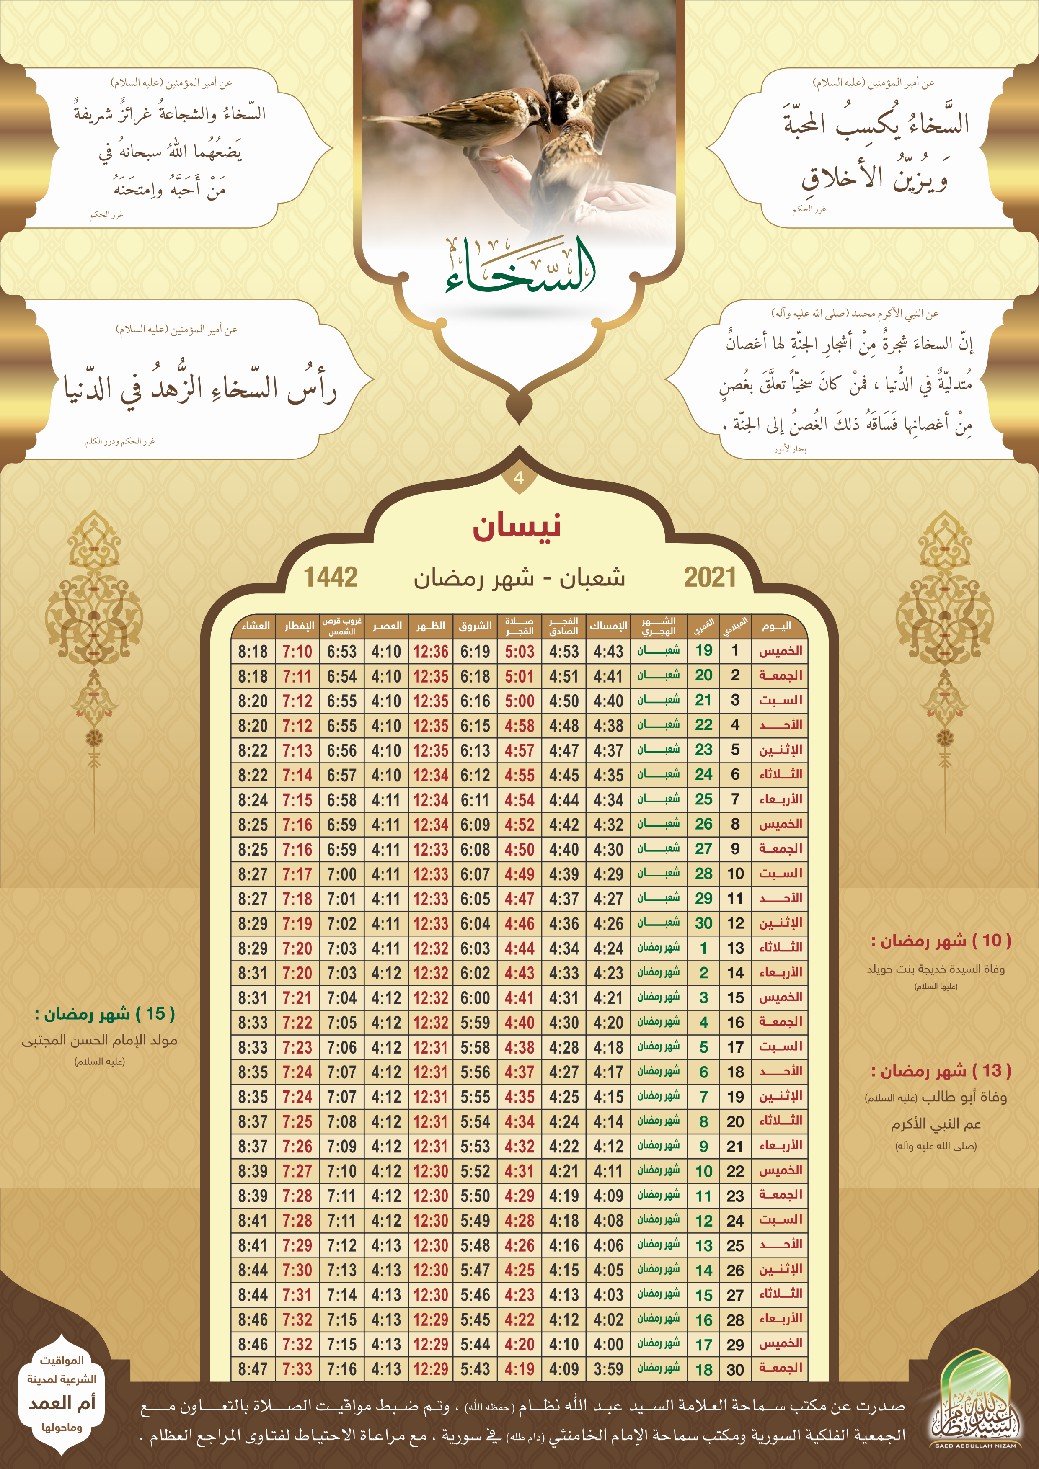 عن أمير المؤمنين (عليه السلام)
السَّخاءُ يُكسِبُ المحبّةَ
وَيُزيّنُ الأخلاقِ
غرر الحكم
عن أمير المؤمنين (عليه السلام)
السّخاءُ والشجاعةُ غرائزٌ شريفةٌ
يَضعُهُما اللهُ سبحانهُ في
مَنْ أَحَبَّهُ وامتحَنَهُ
غرر الحكم
السخاء
عن النبي الأكرم محمد (صلى الله عليه وآله)
إنّ السخاءَ شجرةٌ مِنْ أشجارِ الجنّةِ لها أغصانٌ
مُتدليّةٌ في الدُّنيا ، فمَنْ كانَ سخيّاً تعلَّقَ بغُصنٍ
مِنْ أغصانِها فَسَاقَهُ ذلكَ الغُصنُ إلى الجنّة .
بحار الأنوار
عن أمير المؤمنين (عليه السلام)
رأسُ السّخاءِ الزُّهدُ في الدّنيا
غرر الحكم ودرر الكلم
4
نيسان
2021 شعبان - شهر رمضان 1442
اليوم الميلادي القمري الشهر الهجري الإمساك الفجر الصادق صلاة الفجر الشروق الظهر العصر غروب قرص الشمس الإفطار العشاء
الخميس 1 19 شعبان 4:43 4:53 5:03 6:19 12:36 4:10 6:53 7:10 8:18
الجمعة 2 20 شعبان 4:41 4:51 5:01 6:18 12:35 4:10 6:54 7:11 8:18
السبت 3 21 شعبان 4:40 4:50 5:00 6:16 12:35 4:10 6:55 7:12 8:20
الأحد 4 22 شعبان 4:38 4:48 4:58 6:15 12:35 4:10 6:55 7:12 8:20
الإثنين 5 23 شعبان 4:37 4:47 4:57 6:13 12:35 4:10 6:56 7:13 8:22
الثلاثاء 6 24 شعبان 4:35 4:45 4:55 6:12 12:34 4:10 6:57 7:14 8:22
الأربعاء 7 25 شعبان 4:34 4:44 4:54 6:11 12:34 4:11 6:58 7:15 8:24
الخميس 8 26 شعبان 4:32 4:42 4:52 6:09 12:34 4:11 6:59 7:16 8:25
الجمعة 9 27 شعبان 4:30 4:40 4:50 6:08 12:33 4:11 6:59 7:16 8:25
السبت 10 28 شعبان 4:29 4:39 4:49 6:07 12:33 4:11 7:00 7:17 8:27
الأحد 11 29 شعبان 4:27 4:37 4:47 6:05 12:33 4:11 7:01 7:18 8:27
الإثنين 12 30 شعبان 4:26 4:36 4:46 6:04 12:33 4:11 7:02 7:19 8:29
الثلاثاء 13 1 شهر رمضان 4:24 4:34 4:44 6:03 12:32 4:11 7:03 7:20 8:29
الأربعاء 14 2 شهر رمضان 4:23 4:33 4:43 6:02 12:32 4:12 7:03 7:20 8:31
الخميس 15 3 شهر رمضان 4:21 4:31 4:41 6:00 12:32 4:12 7:04 7:21 8:31
الجمعة 16 4 شهر رمضان 4:20 4:30 4:40 5:59 12:32 4:12 7:05 7:22 8:33
السبت 17 5 شهر رمضان 4:18 4:28 4:38 5:58 12:31 4:12 7:06 7:23 8:33
الأحد 18 6 شهر رمضان 4:17 4:27 4:37 5:56 12:31 4:12 7:07 7:24 8:35
الإثنين 19 7 شهر رمضان 4:15 4:25 4:35 5:55 12:31 4:12 7:07 7:24 8:35
الثلاثاء 20 8 شهر رمضان 4:14 4:24 4:34 5:54 12:31 4:12 7:08 7:25 8:37
الأربعاء 21 9 شهر رمضان 4:12 4:22 4:32 5:53 12:31 4:12 7:09 7:26 8:37
الخميس 22 10 شهر رمضان 4:11 4:21 4:31 5:52 12:30 4:12 7:10 7:27 8:39
الجمعة 23 11 شهر رمضان 4:09 4:19 4:29 5:50 12:30 4:12 7:11 7:28 8:39
السبت 24 12 شهر رمضان 4:08 4:18 4:28 5:49 12:30 4:12 7:11 7:28 8:41
الأحد 25 13 شهر رمضان 4:06 4:16 4:26 5:48 12:30 4:13 7:12 7:29 8:41
الإثنين 26 14 شهر رمضان 4:05 4:15 4:25 5:47 12:30 4:13 7:13 7:30 8:44
الثلاثاء 27 15 شهر رمضان 4:03 4:13 4:23 5:46 12:30 4:13 7:14 7:31 8:44
الأربعاء 28 16 شهر رمضان 4:02 4:12 4:22 5:45 12:29 4:13 7:15 7:32 8:46
الخميس 29 17 شهر رمضان 4:00 4:10 4:20 5:44 12:29 4:13 7:15 7:32 8:46
الجمعة 30 18 شهر رمضان 3:59 4:09 4:19 5:43 12:29 4:13 7:16 7:33 8:47
( 10 ) شهر رمضان :
وفاة السيدة خديجة بنت خويلد
(عليها السلام)
( 13 ) شهر رمضان :
وفاة أبو طالب (عليه السلام)
عم النبي الأكرم
(صلى الله عليه وآله)
( 15 ) شهر رمضان :
مولد الإمام الحسن المجتبى
(عليه السلام)
المواقيت
الشرعية لمدينة
أم العمد
وماحولها
صدرت عن مكتب سماحة العلامة السيد عبد الله نظام (حفظه الله) ، وتم ضبط مواقيت الصلاة بالتعاون مع
الجمعية الفلكية السورية ومكتب سماحة الإمام الخامنئي (دام ظله) في سورية ، مع مراعاة الاحتياط لفتاوى المراجع العظام .
السيد عبد الله نظام
SAED ABDULLAH NIZAM